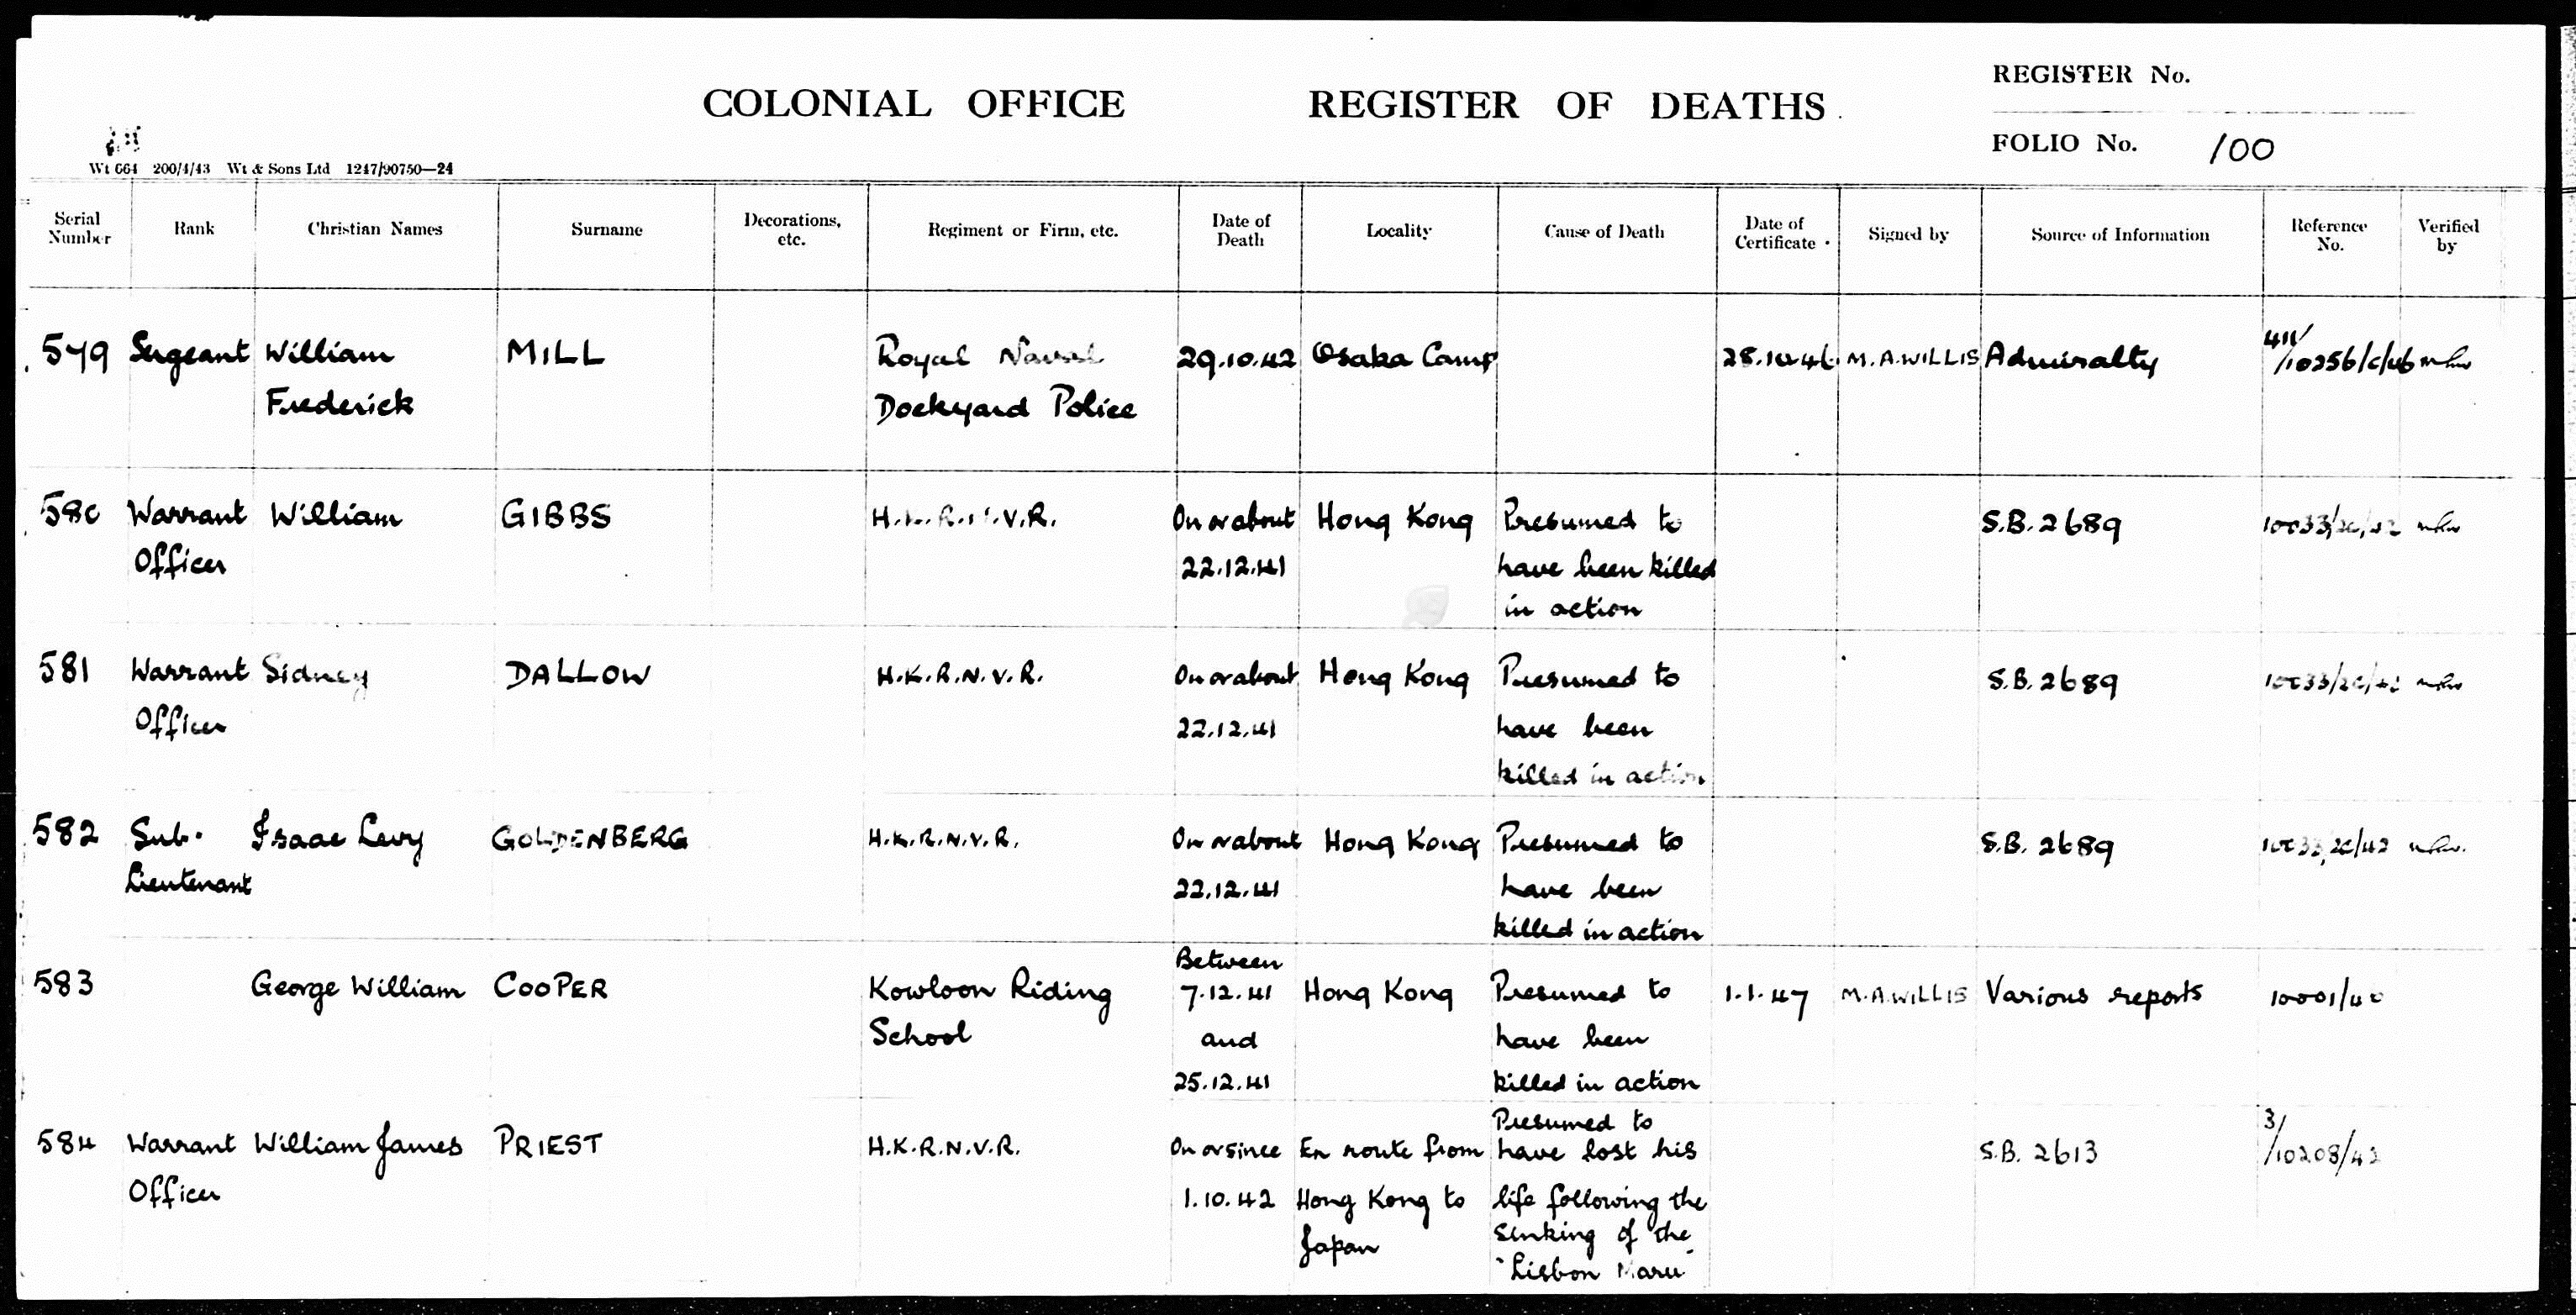 COLONIAL OFFICE REGISTER OF DEATHS.
REGISTER No.
FOLIO No. 100
Wt 664 200/4/43 Wt & Sons Ltd 1247/90750—24
Serial Number Rank Christian Names Surname Decorations, etc. Regiment or Firm, etc. Date of Death Locality Cause of Death Date of Certificate Signed by Source of Information Reference No. Verified by
579 Sergeant William MILL Royal Naval 29.10.42 Osaka Camp 28.10.46 M.A.WILLIS Admiralty 411/
/10256/C/46
Frederick Dockyard Police
580 Warrant William GIBBS H.K.R.N.V.R. On or about Hong Kong Presumed to S.B. 2689 10033/2C/42
Officer 22.12.41 have been killed
in action
581 Warrant Sidney DALLOW H.K.R.N.V.R. On or about Hong Kong Presumed to S.B. 2689 10033/2C/42
Officer 22.12.41 have been
killed in action
582 Sub. Isaac Levy GOLDENBERG H.K.R.N.V.R. On or about Hong Kong Presumed to S.B. 2689 10033/2C/42
Lieutenant 22.12.41 have been
killed in action
Between
583 George William COOPER Kowloon Riding 7.12.41 Hong Kong Presumed to 1.1.47 M.A.WILLIS Various reports
School and have been
25.12.41 killed in action
Presumed to 3/
584 Warrant William James PRIEST H.K.R.N.V.R. On or since En route from have lost his S.B. 2613 /10208/42
Officer 1.10.42 Hong Kong to life following the
Japan sinking of the
"Lisbon Maru"